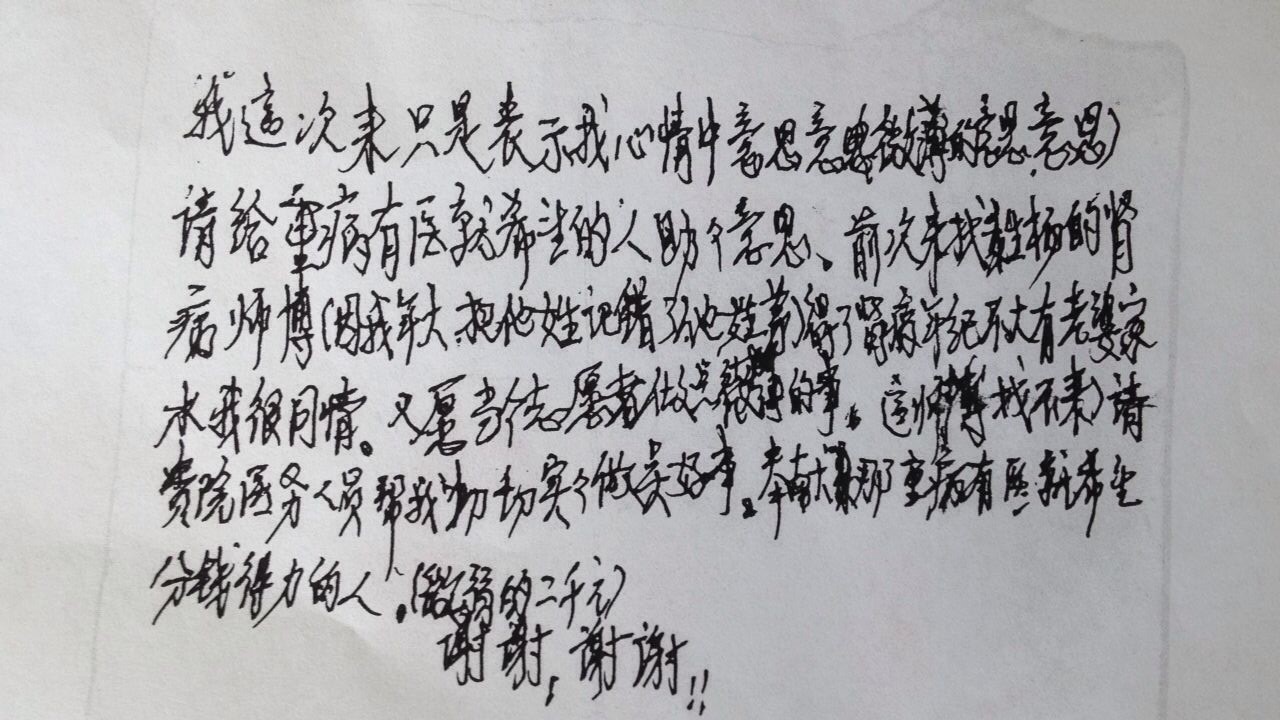 我这次来只是表示我心情中意思意思微薄的意思意思)
请给重病有医就希望的人助个意思、前次来找姓杨的肾
病师博(因我年大.把他姓记错了他姓)得了肾病年纪不大有老婆家
水我很同情。又愿当个志愿者做点微薄的事。这师博找不来)请
贵院医务人员帮我切切实实个做点好事。奉 那重病有医就希望
分钱得力的人。(微弱的二千元)
谢谢!谢谢!!